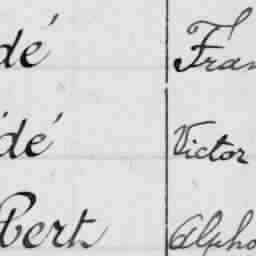 dé Fran
dé Victor
bert Alpho